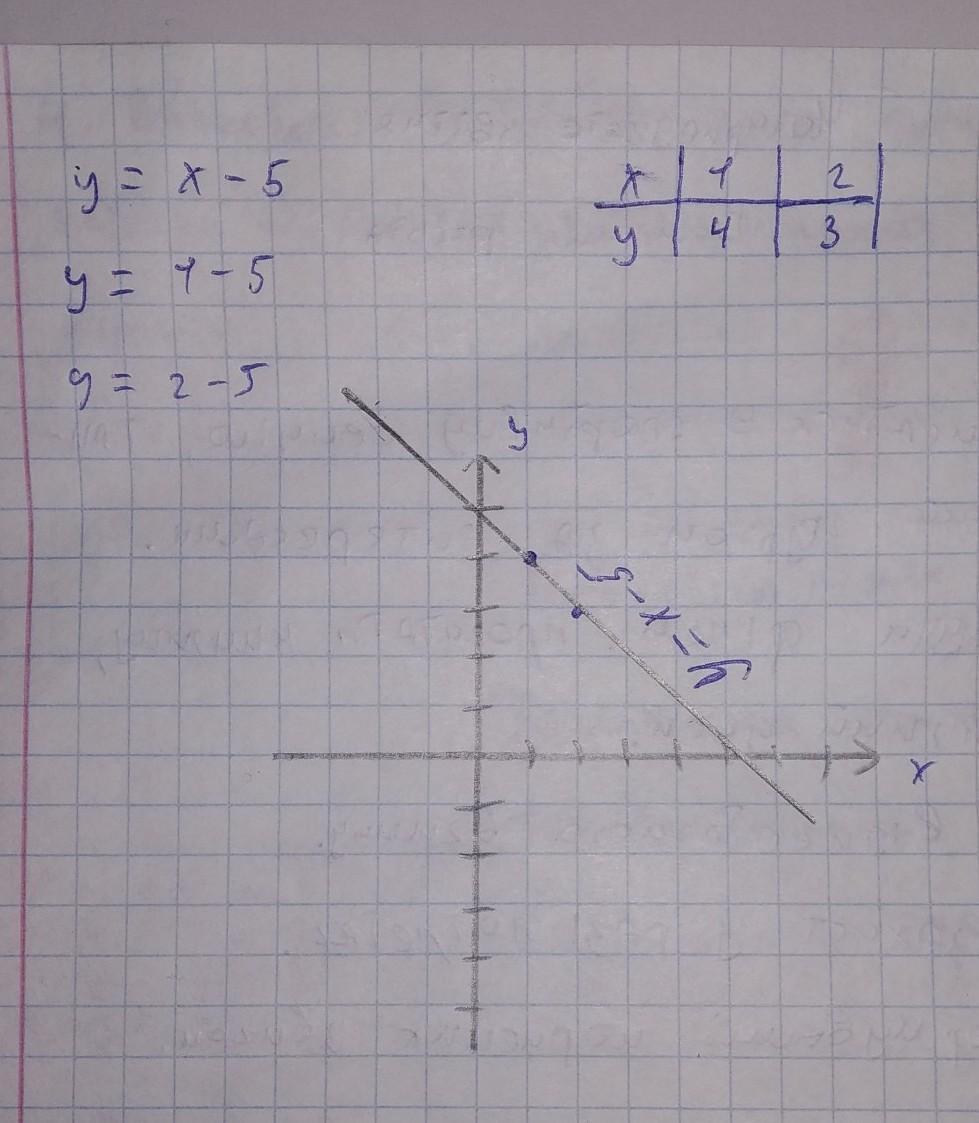 y = x - 5
y = 1 - 5
y = 2 - 5
x 1 2
y 4 3
y
y = x - 5
x